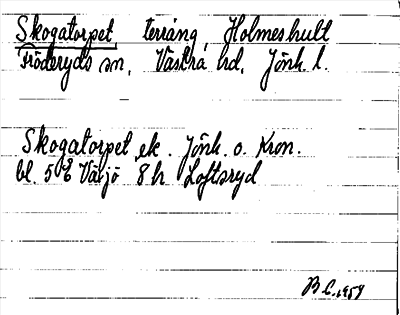 Skogatorpet, terräng, Holmeshult
Fröderyds sn, Västra hd, Jönk. l.
Skogatorpet ek. Jönk. o. Kron.
bl. 5 E Växjö 8h Loftsryd
B C. 1959